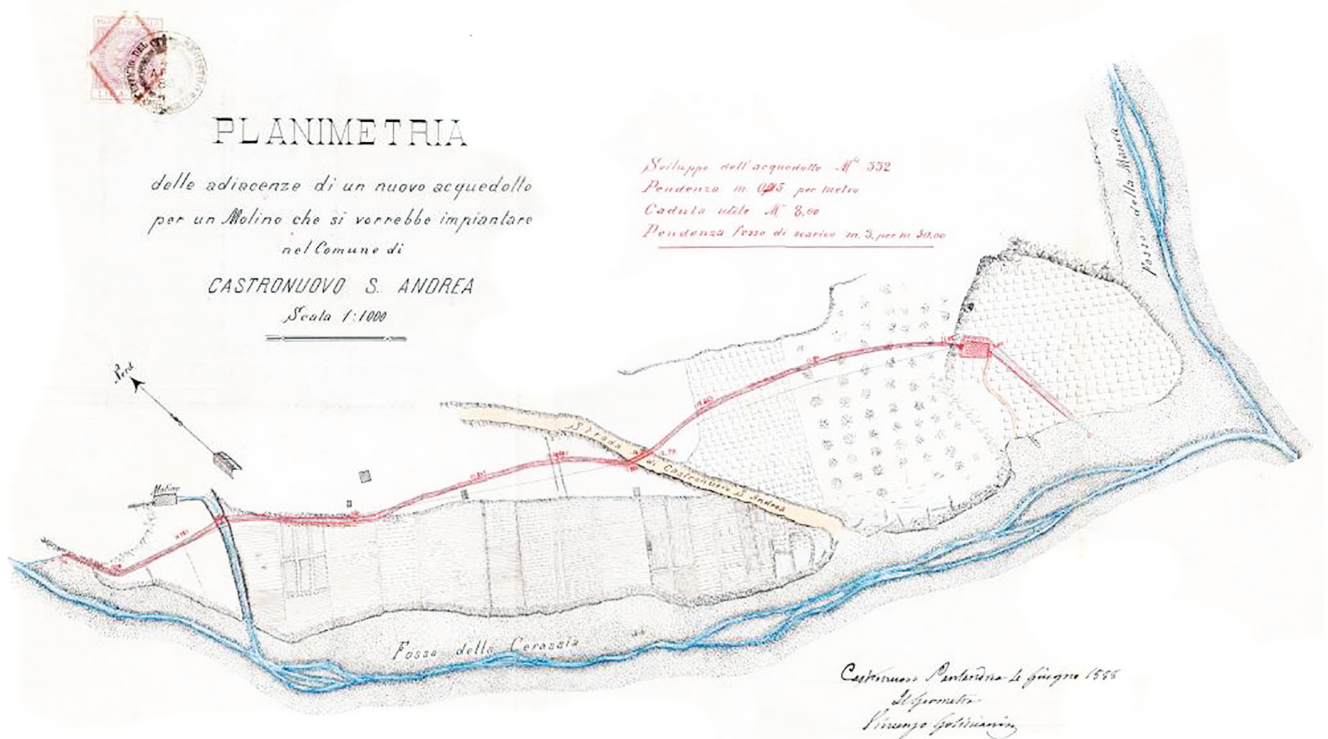 PLANIMETRIA
delle adiacenze di un nuovo acquedotto
per un Molino che si vorrebbe impiantare
nel Comune di
CASTRONUOVO S. ANDREA
Scala 1:1000
Sviluppo dell'acquedotto M.ti 552
Pendenza m. per metro
Caduta utile M.ti 8,00
Pendenza fosso di scarico m. 3, per m 50,00
Fosso della Manca
Nord
Strada di Castronuovo S. Andrea
Molino
Fosso della Cerassia
Castronuovo Giugno
Il Geometra
Vincenzo